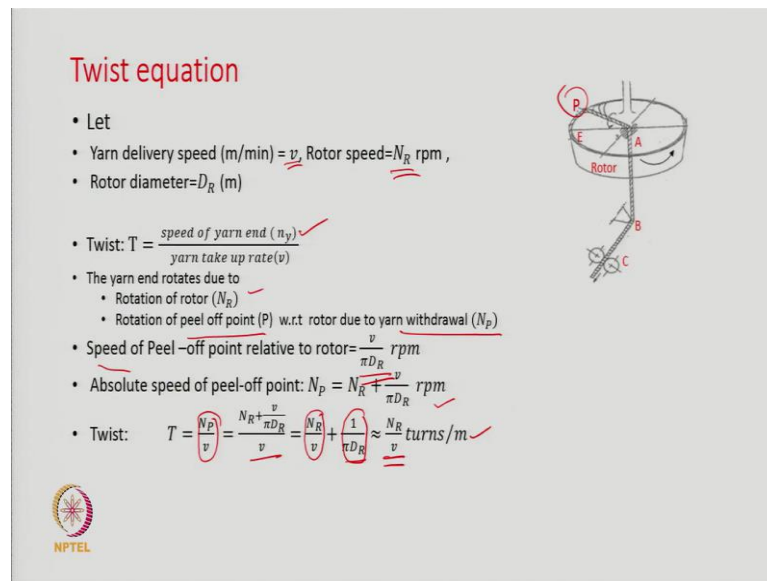 Twist equation
• Let
• Yarn delivery speed (m/min) = v, Rotor speed=N_R rpm ,
• Rotor diameter=D_R (m)
• Twist: T = speed of yarn end (n_y) / yarn take up rate(v)
• The yarn end rotates due to
• Rotation of rotor (N_R)
• Rotation of peel off point (P) w.r.t rotor due to yarn withdrawal (N_P)
• Speed of Peel –off point relative to rotor= v/πD_R rpm
• Absolute speed of peel-off point: N_P = N_R + v/πD_R rpm
• Twist: T = N_P/v = (N_R + v/πD_R)/v = N_R/v + 1/πD_R ≈ N_R/v turns/m
P
E
A
Rotor
B
C
NPTEL